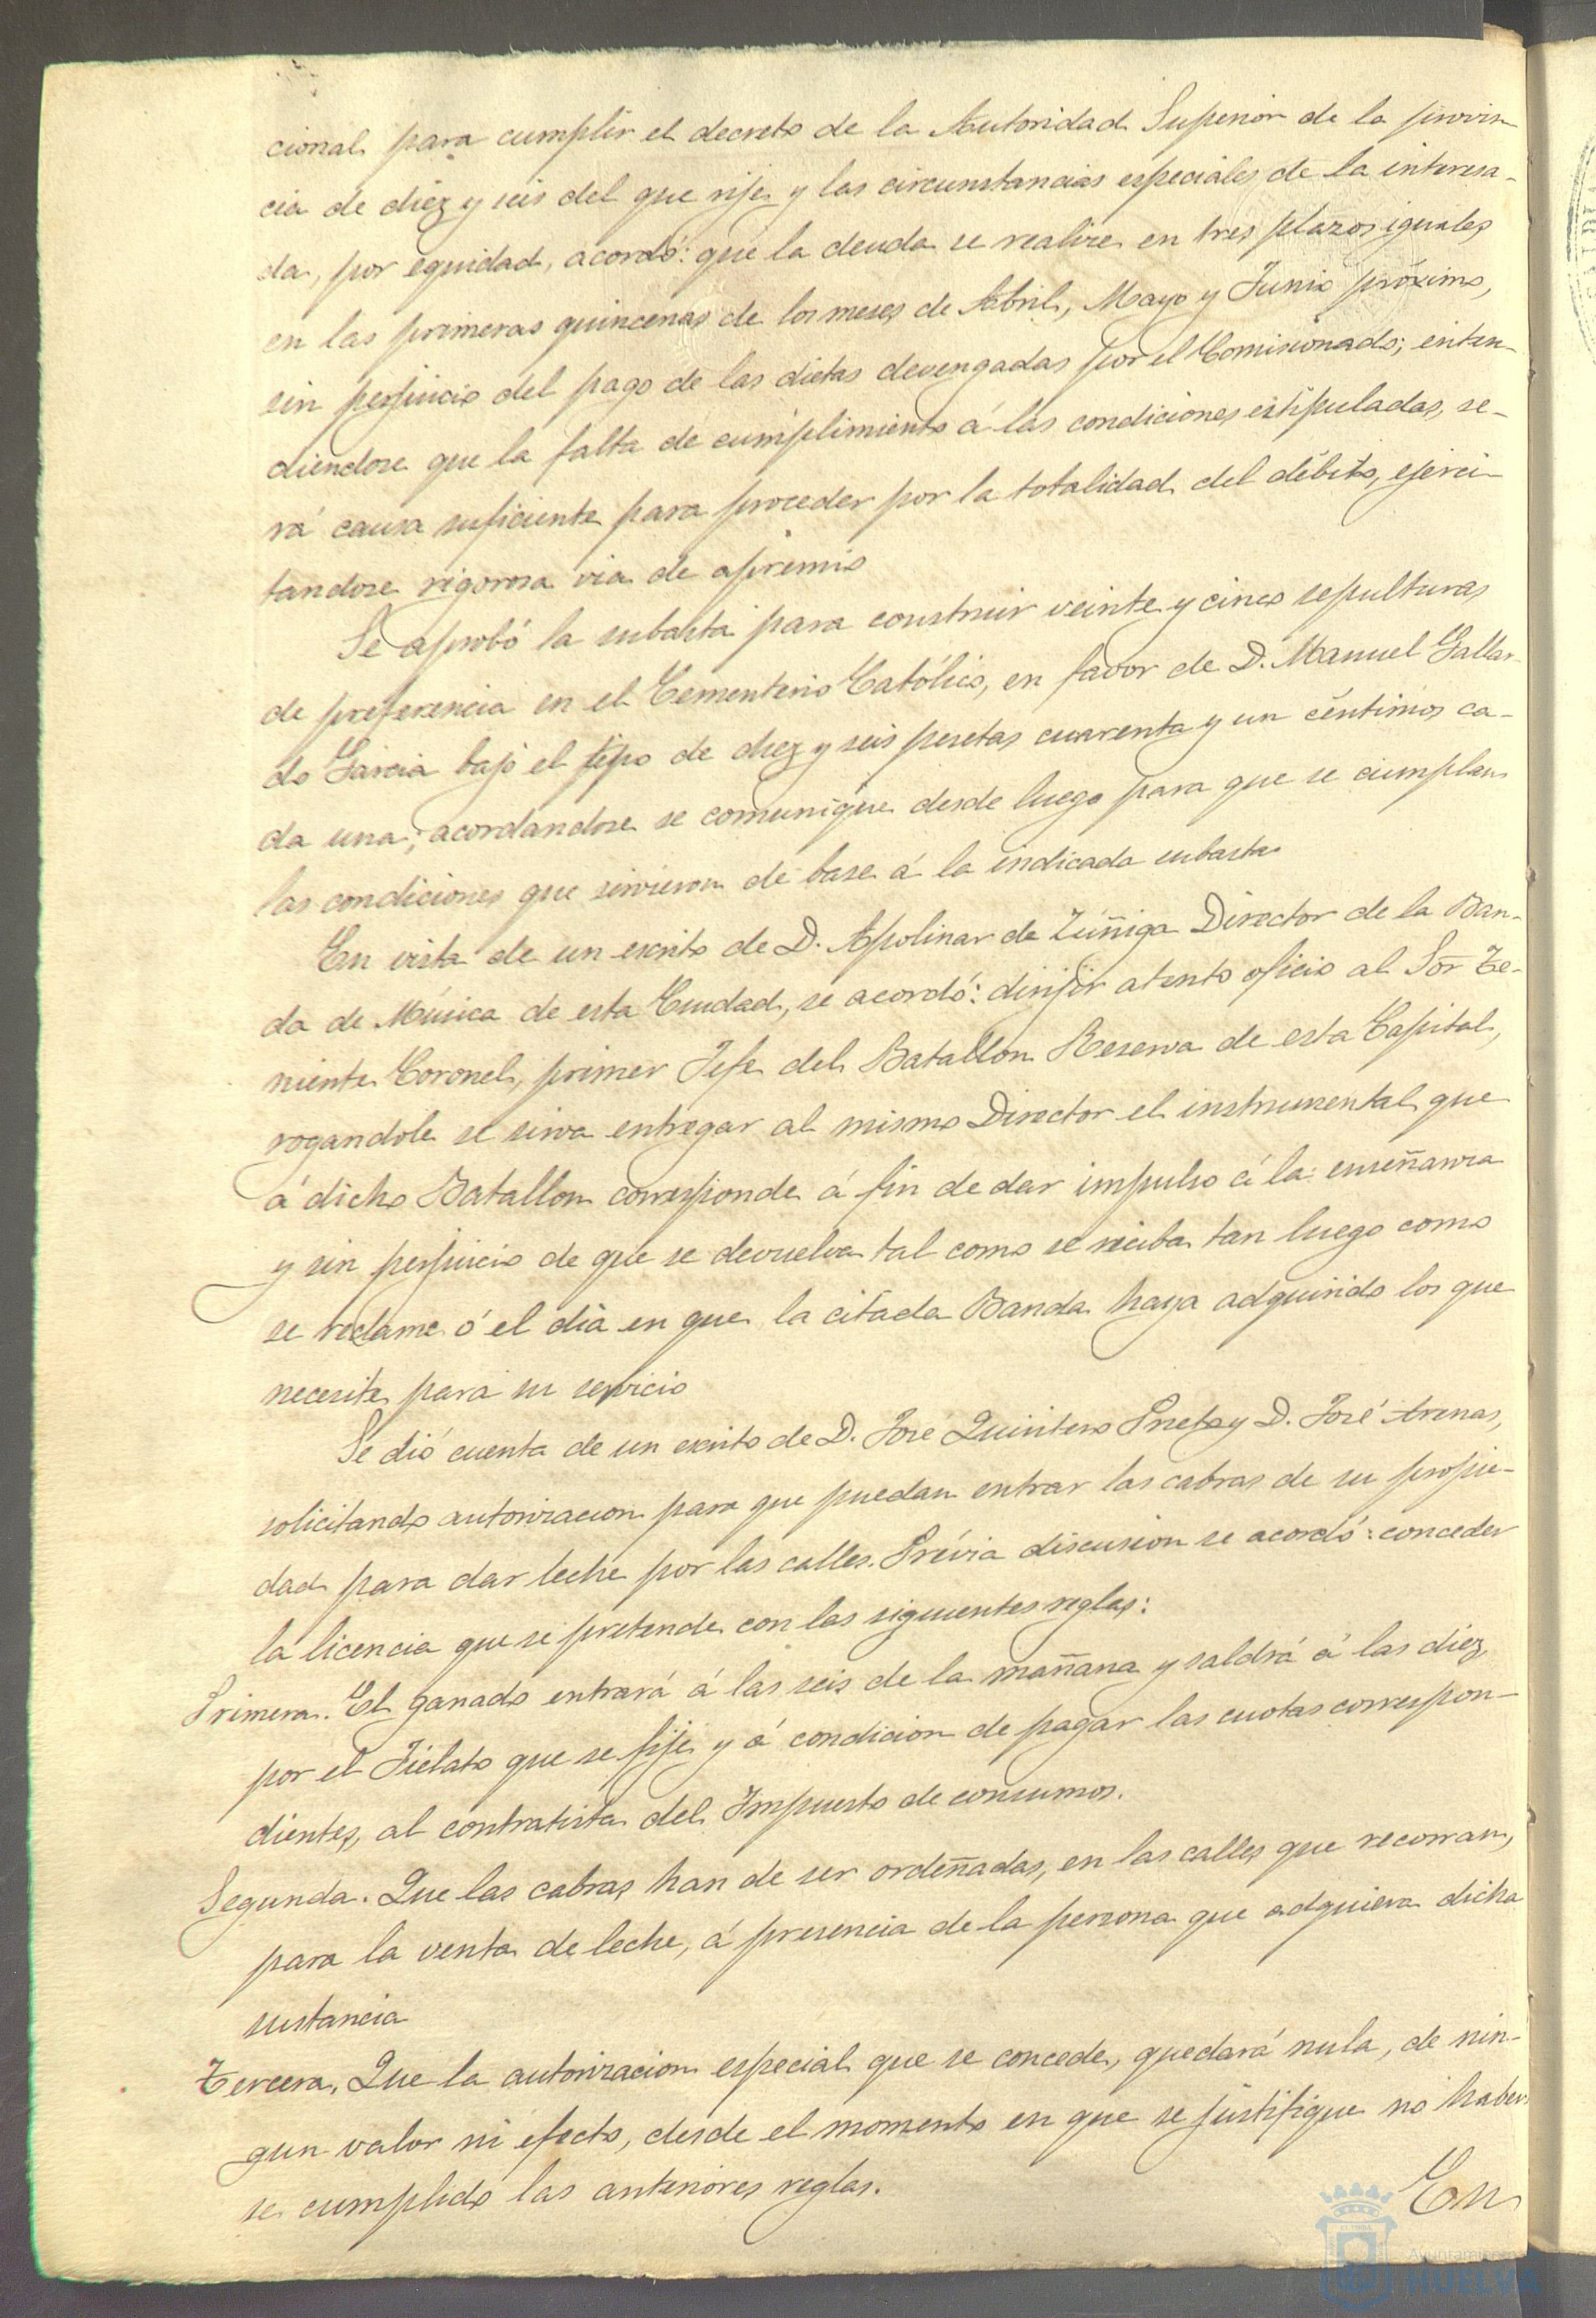 cional para cumplir el decreto de la Autoridad Superior de la provin-
cia de diez y seis del que rije y las circunstancias especiales de la interesa-
da, por equidad, acordó: que la deuda se realize en tres plazos iguales
en las primeras quincenas de los meses de Abril, Mayo y Junio próximo,
sin perjuicio del pago de las dietas devengadas por el Comisionado; enten-
diendose que la falta de cumplimiento á las condiciones estipuladas, se-
rá causa suficiente para proceder por la totalidad del débito, ejerci-
tandose rigorosa via de apremio
Se aprobó la subasta para construir veinte y cinco sepulturas
de preferencia en el Cementerio Católico, en favor de D. Manuel Gallar-
do Garcia bajo el tipo de diez y seis pesetas cuarenta y un céntimos ca-
da una; acordandose se comunique desde luego para que se cumplan
las condiciones que sirvieron de base á la indicada subasta
En vista de un escrito de D. Apolinar de Zúñiga Director de la Ban-
da de Música de esta Ciudad, se acordó: dirijir atento oficio al Sor Te-
niente Coronel, primer Jefe del Batallon Reserva de esta Capital,
rogandole se sirva entregar al mismo Director el instrumental que
á dicho Batallon corresponde á fin de dar impulso á la enseñanza
y sin perjuicio de que se devuelva tal como se reciba tan luego como
se reclame ó el dia en que la citada Banda haya adquirido los que
necesite para su servicio
Se dió cuenta de un escrito de D. José Quintero Prieto y D. José Arenas,
solicitando autorizacion para que puedan entrar las cabras de su propie-
dad para dar leche por las calles. Prévia discusion se acordó: conceder
la licencia que se pretende con las siguientes reglas:
Primera. El ganado entrará á las seis de la mañana y saldrá á las diez,
por el Fielato que se fije y á condicion de pagar las cuotas correspon-
dientes, al contratista del Impuesto de consumos.
Segunda. Que las cabras han de ser ordeñadas, en las calles que recorran,
para la venta de leche, á presencia de la persona que adquiera dicha
sustancia
Tercera. Que la autorizacion especial que se concede, quedará nula, de nin-
gun valor ni efecto, desde el momento en que se justifique no haber
se cumplido las anteriores reglas.
En
Ayuntamiento
HUELVA